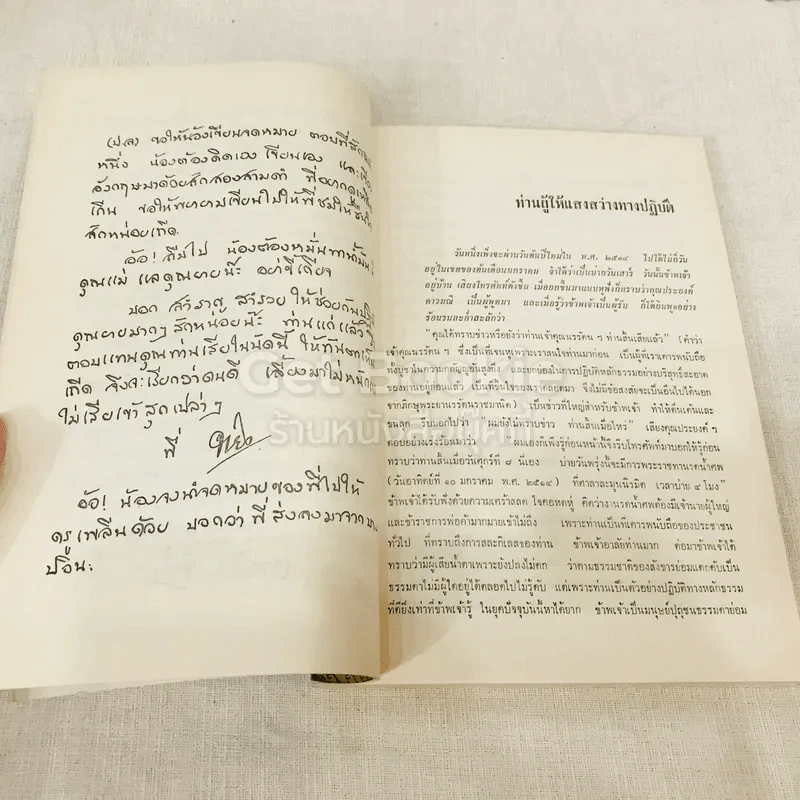 (ป.ล) ขอให้น้องเขียนจดหมาย ตอบพี่สัก
หนึ่ง น้องต้องคิดเอง เขียนเอง และ
อังกฤษมาด้วยสักสองสามคำ พี่อยากดู
เกิน ขอให้พยายามเขียนไปให้พี่ชมให้ชื่นใจ
สักหน่อยเถิด.
อ้อ! ลืมไป น้องต้องหมั่นหา
คุณแม่ และคุณยายน๊ะ อย่าขี้เกียจ
บอก สำราญ สำรวย ให้ช่วยกัน
คุณยายมากๆ สักหน่อยน๊ะ ท่านแก่แล้ว
ตอบแทนคุณท่านเสียในนัดนี้ ให้ทัน
เถิด จึงจะเรียกว่าคนดี เลี้ยงมาไม่หนัก
ไม่เสียเข้าสุกเปล่าๆ
พี่
อ้อ! น้องจงนำจดหมายของพี่ไปให้
ครูเพลินด้วย บอกว่า พี่สั่งลงมาจาก
ปีวัน.
ท่านผู้ให้แสงสว่างทางปฏิบัติ
วันหนึ่งเพิ่งจะผ่านวันต้นปีใหม่ใน พ.ศ. ๒๕๑๙ ไปได้ไม่กี่วัน
อยู่ในเขตของต้นเดือนมกราคม จำได้ว่าเป็นบ่ายวันเสาร์ วันนั้นข้าพเจ้า
อยู่บ้าน เสียงโทรศัพท์ดังขึ้น เมื่อยกขึ้นมาแนบหูฟังก็ทราบว่าคุณประยงค์
ดาวมณี เป็นผู้พูดมา และเมื่อรู้ว่าข้าพเจ้าเป็นผู้รับ ก็ได้ยินพูดอย่าง
ร้อนรนละล่ำละลักว่า
"คุณได้ทราบข่าวหรือยังว่าท่านเจ้าคุณนรรัตน ฯ ท่านสิ้นเสียแล้ว" (คำว่า
เจ้าคุณนรรัตน ฯ ซึ่งเป็นที่เจนหูเพราะเราสนใจท่านมาก่อน เป็นผู้ที่เราเคารพนับถือ
ทั้งบูชาในความกตัญญูอันสูงยิ่ง และยกย่องในการปฏิบัติหลักธรรมอย่างบริสุทธิ์สะอาด
ของท่านอยู่ก่อนแล้ว เป็นที่ชื่นใจของเราตลอดมา จึงไม่มีข้อสงสัยจะเป็นอื่นไปได้นอก
จากภิกษุพระยานรรัตนราชมานิต) เป็นข่าวที่ใหญ่สำหรับข้าพเจ้า ทำให้ตื่นเต้นและ
ขนลุก รีบบอกไปว่า "ผมยังไม่ทราบข่าว ท่านสิ้นเมื่อไหร่" เสียงคุณประยงค์ ฯ
ตอบอย่างเร่งร้อนมาว่า "ผมเองก็เพิ่งรู้ก่อนหน้านี้จึงรีบโทรศัพท์มาบอกให้รู้ก่อน
ทราบว่าท่านสิ้นเมื่อวันศุกร์ที่ ๘ นี่เอง บ่ายวันพรุ่งนี้จะมีการพระราชทานรดน้ำศพ
(วันอาทิตย์ที่ ๑๐ มกราคม พ.ศ. ๒๕๑๙) ที่ศาลาละมุนนิรมิต เวลาบ่าย ๔ โมง"
ข้าพเจ้าได้รับฟังด้วยความเศร้าสลด ใจคอหดหู่ คิดว่างานรดน้ำศพต้องมีเจ้านายผู้ใหญ่
และข้าราชการพ่อค้ามากมายเข้าไม่ถึง เพราะท่านเป็นที่เคารพนับถือของประชาชน
ทั่วไป ที่ทราบถึงการสละกิเลสของท่าน ข้าพเจ้าอาลัยท่านมาก ต่อมาข้าพเจ้าได้
ทราบว่ามีผู้เสียน้ำตาเพราะยังปลงไม่ตก ว่าตามธรรมชาติของสังขารย่อมแตกดับเป็น
ธรรมดาไม่มีผู้ใดอยู่ได้ตลอดไปไม่รู้ดับ แต่เพราะท่านเป็นตัวอย่างปฏิบัติทางหลักธรรม
ที่ดียิ่งเท่าที่ข้าพเจ้ารู้ ในยุคปัจจุบันนี้หาได้ยาก ข้าพเจ้าเป็นมนุษย์ปุถุชนธรรมดาย่อม